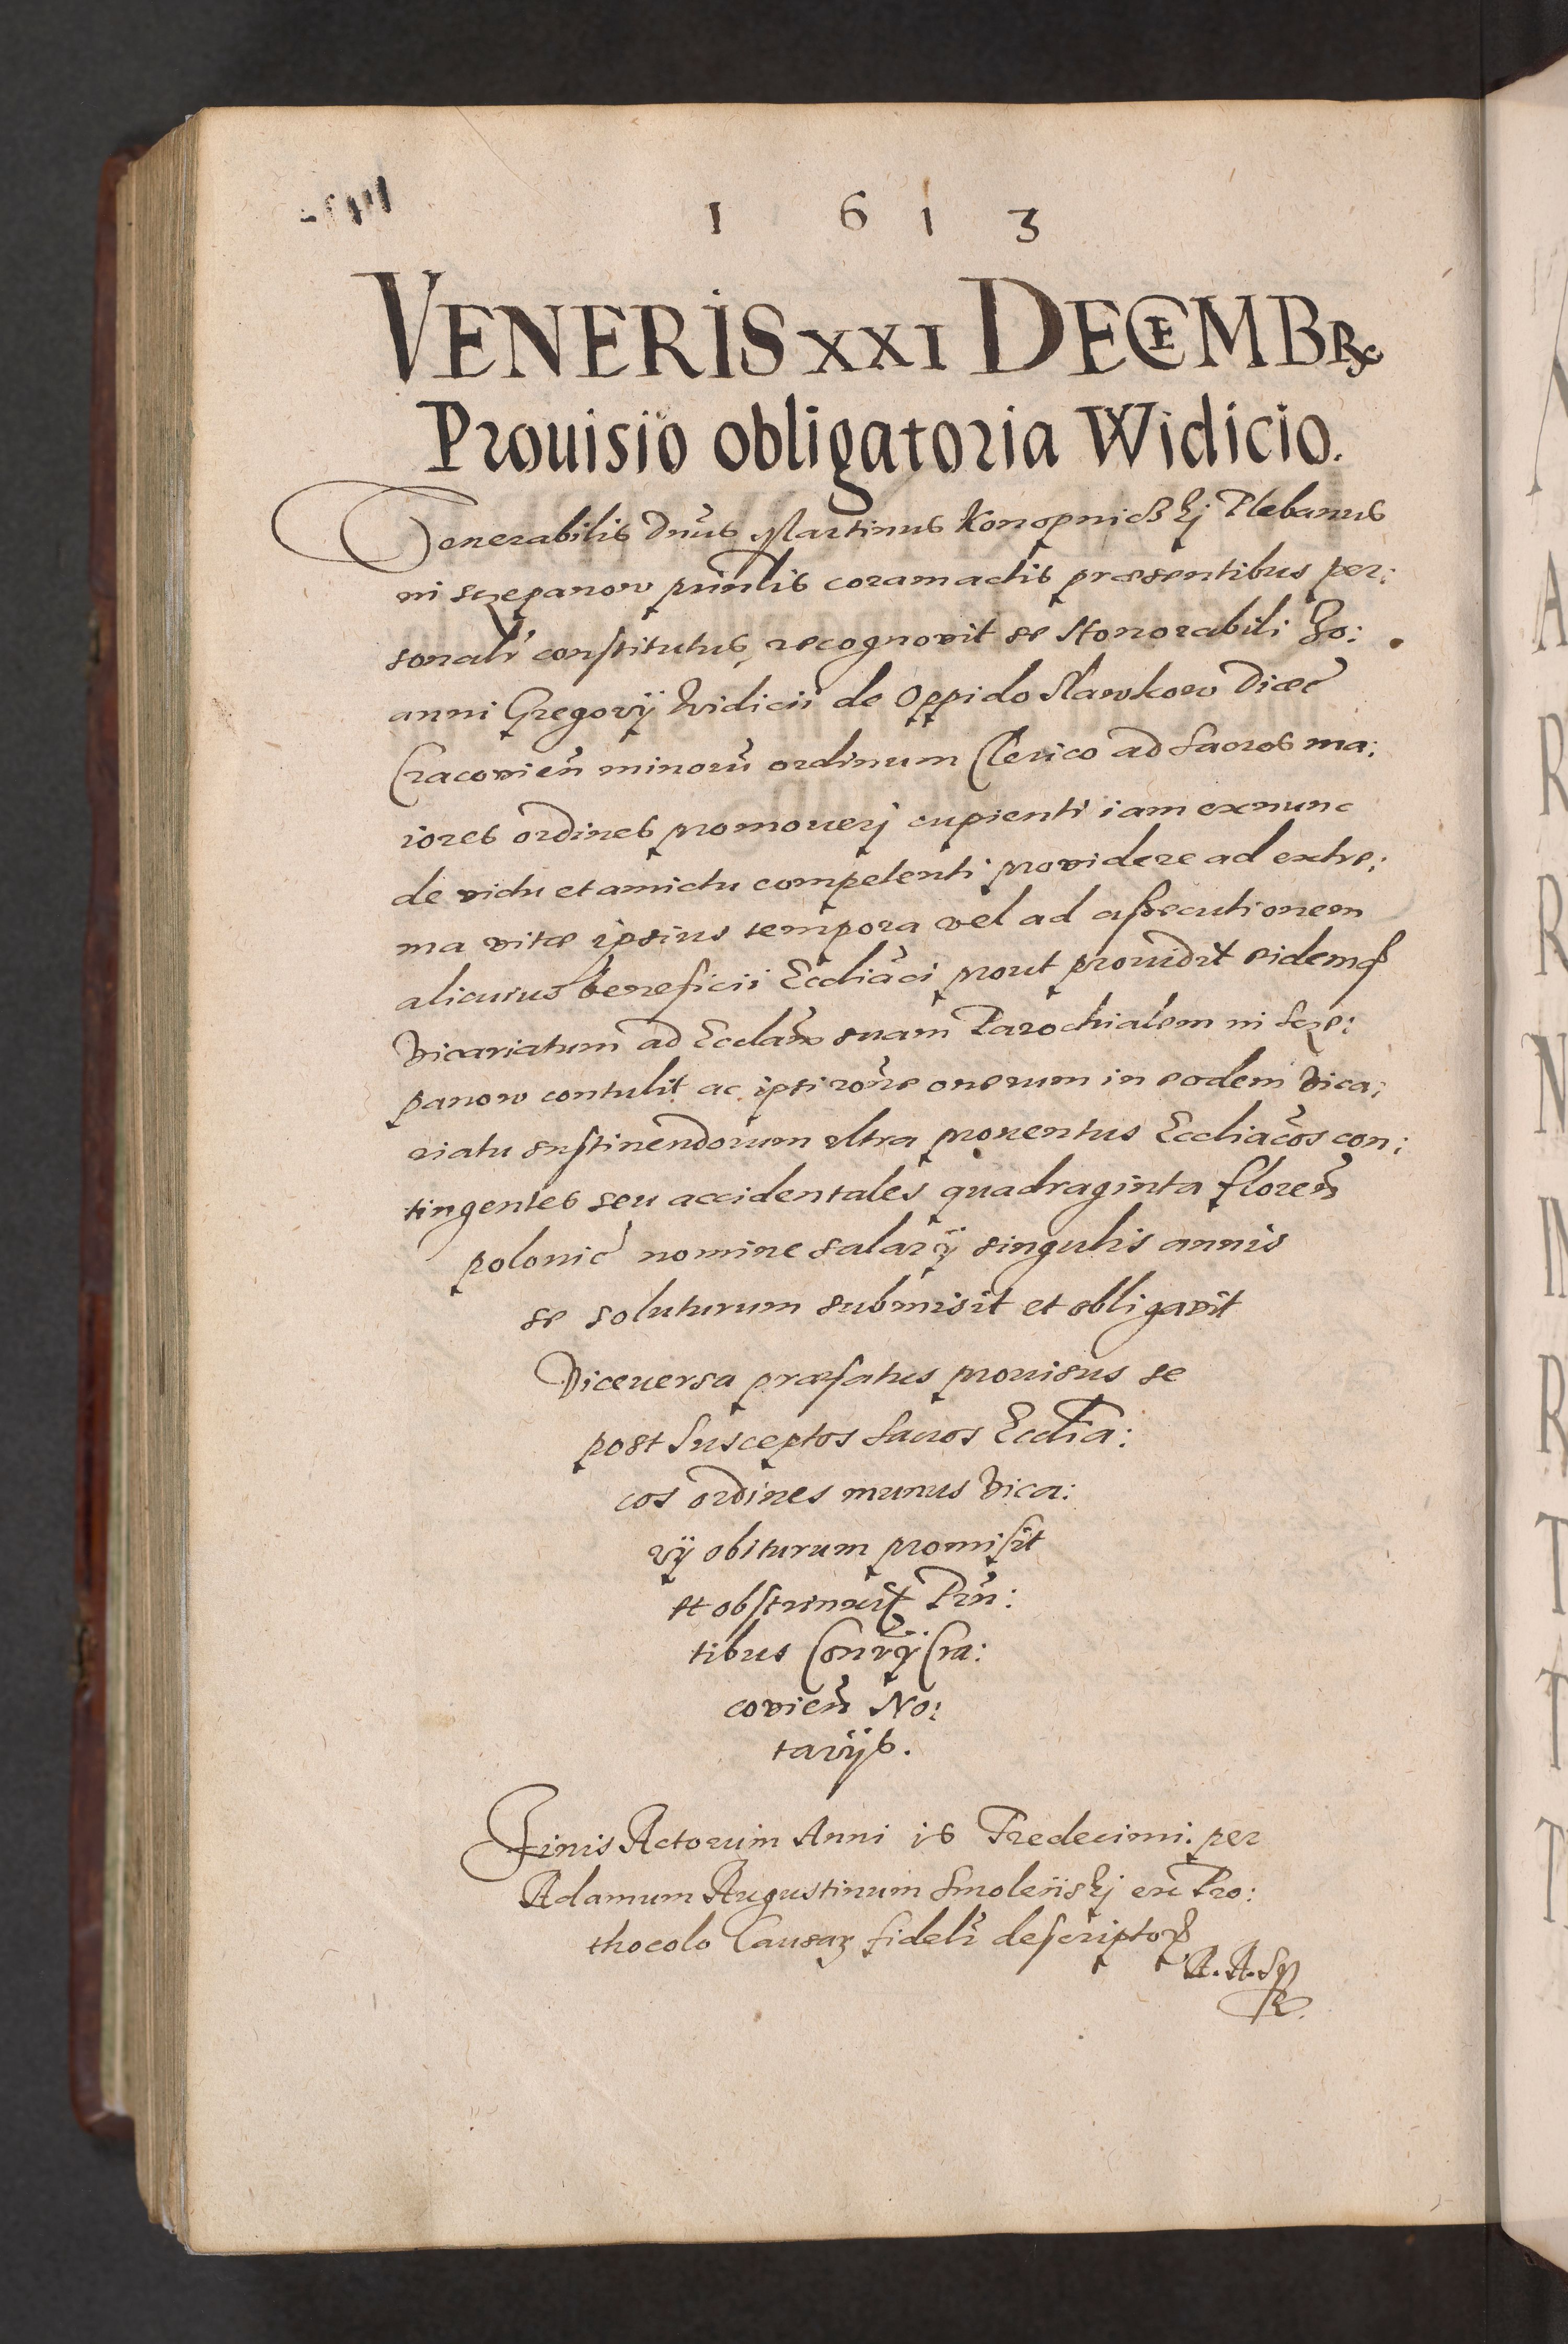 1 6 1 3
VENERIS XXI DECEMBR
Prouisio obligatoria Widicio.
Venerabilis Dnus Martinus Konopnicßkj Plebanus
in Sczepanow prinlis coram actis præsentibus per:
sonalr constitutus, recognovit se Honorabili Jo:
anni Gregorÿ Widicii de Oppido Slawkow Diœc
Cracovien minoru ordinum Clerico ad sacros ma:
iores ordines promoverj cupienti iam exnunc
de victu et amictu competenti providere ad extre:
ma vitæ ipsius tempora vel ad assecutionem
alicuius beneficii Eccliaci prout providit eidemq
Vicariatum ad Ecclam suam Parochialem in Scze:
panow contulit ac ipsi rone onerum in eodem Vica:
riatu sustinendorum ultra proventus Eccliacos con:
tingentes seu accidentales quadraginta floren
polonic nomine salarÿ singulis annis
se soluturum submisit et obligavit
Viceversa præfatus provisus se
post susceptos sacros Ecclia:
cos ordines munus Vica:
rÿ obiturum promisit
et obstrinxit Prn:
tibus Conrÿ Cra:
covien No:
tarÿs.
Finis Actorum Anni 16 Tredecimi. per
Adamum Augustinum Smolenskj ex Pro:
thocolo Causar fidelr descriptor
A. A. S